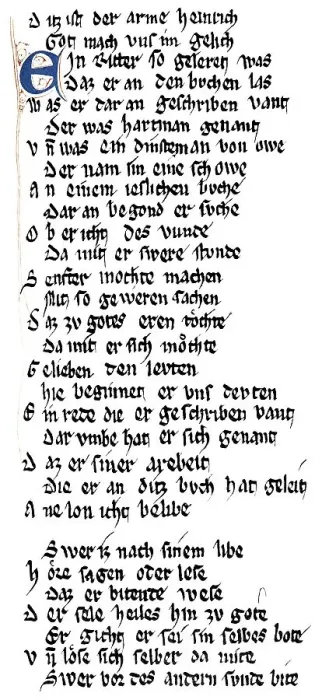 D itz ist der arme heinrich
Got mach vns im gelich
EIn Ritter so geleret was
Daz er an den bvchen las
w as er dar an geschriben vant
Der was hartman genant
v n̄ was ein dinsteman von owe
Der nam im eine schowe
A n einem ieslichen bvche
Dar an begond er svche
O b er icht des vunde
Da mit er swere stunde
S enfter mochte machen
Mit so geweren sachen
D az zv gotes eren tochte
Da mit er sich mochte
G elieben den levten
hie beginnet er vns devten
E in rede die er geschriben vant
Dar vmbe hat er sich genant
D az er siner arebeit
Die er an ditz bvch hat geleit
A ne lon icht belibe
Swer iz nach sinem libe
h ore sagen oder lese
Daz er bitende wese
D er sele heiles hin zv gote
Er gicht er sei sin selbes bote
v n̄ lose sich selber da mite
Swer vor des andern svnde bite